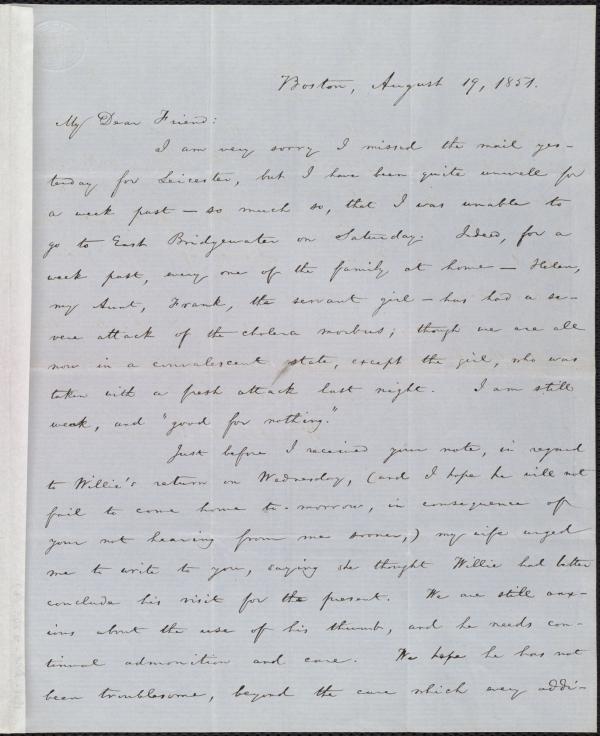 Boston, August 19, 1851.
My Dear Friend:
I am very sorry I missed the mail yes-
terday for Leicester, but I have been quite unwell for
a week past — so much so, that I was unable to
go to East Bridgewater on Saturday. Indeed, for a
week past, every one of the family at home — Helen,
my Aunt, Frank, the servant girl — has had a se-
vere attack of the cholera morbus; though we are all
now in a convalescent state, except the girl, who was
taken with a fresh attack last night. I am still
weak, and "good for nothing."
Just before I received your note, in regard
to Willie's return on Wednesday, (and I hope he will not
fail to come home to-morrow, in consequence of
your not hearing from me sooner,) my wife urged
me to write to you, saying she thought Willie had better
conclude his visit for the present. We are still anx-
ious about the use of his thumb, and he needs con-
tinual admonition and care. We hope he has not
been troublesome, beyond the care which every addi-